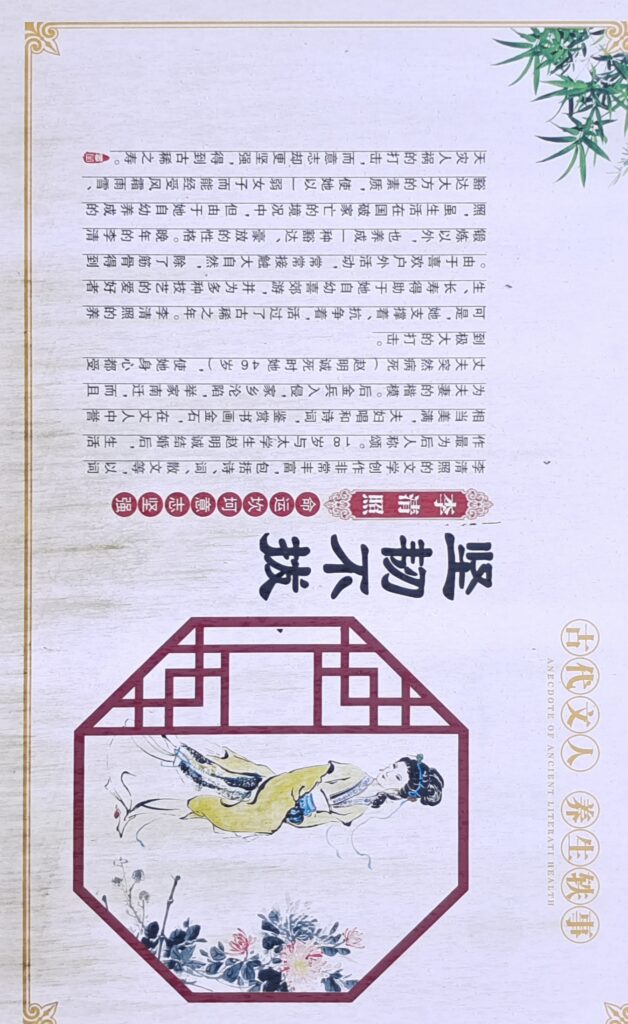 古代文人 养生轶事
ANECDOTE OF ANCIENT LITERATI HEALTH
坚韧不拔
李清照
命运坎坷意志坚强
李清照的文学创作非常丰富，包括诗、词、散文等，以词
作最为后人称颂。18岁与太学生赵明诚结婚后，生活
相当美满，夫妇唱和诗词，鉴赏书画金石，在文人中誉
为夫妻的楷模。后金兵入侵，家乡沦陷，举家南迁，而且
丈夫突然病死（赵明诚死时她46岁），使她身心都受
到极大的打击。
可是，她支撑着、抗争着，活过了古稀之年。李清照的养
生、长寿得助于她自幼喜郊游，并为多种技艺的爱好者
。由于喜欢户外活动，常常接触大自然，除了筋骨得到
锻炼以外，也养成一种豁达、豪放的性格。晚年的李清
照，虽生活在国破家亡的境况中，但由于她自幼养成的
豁达大方的素质，使她以一弱女子而能经受风霜雨雪、
天灾人祸的打击，而意志却更坚强，得到古稀之寿。